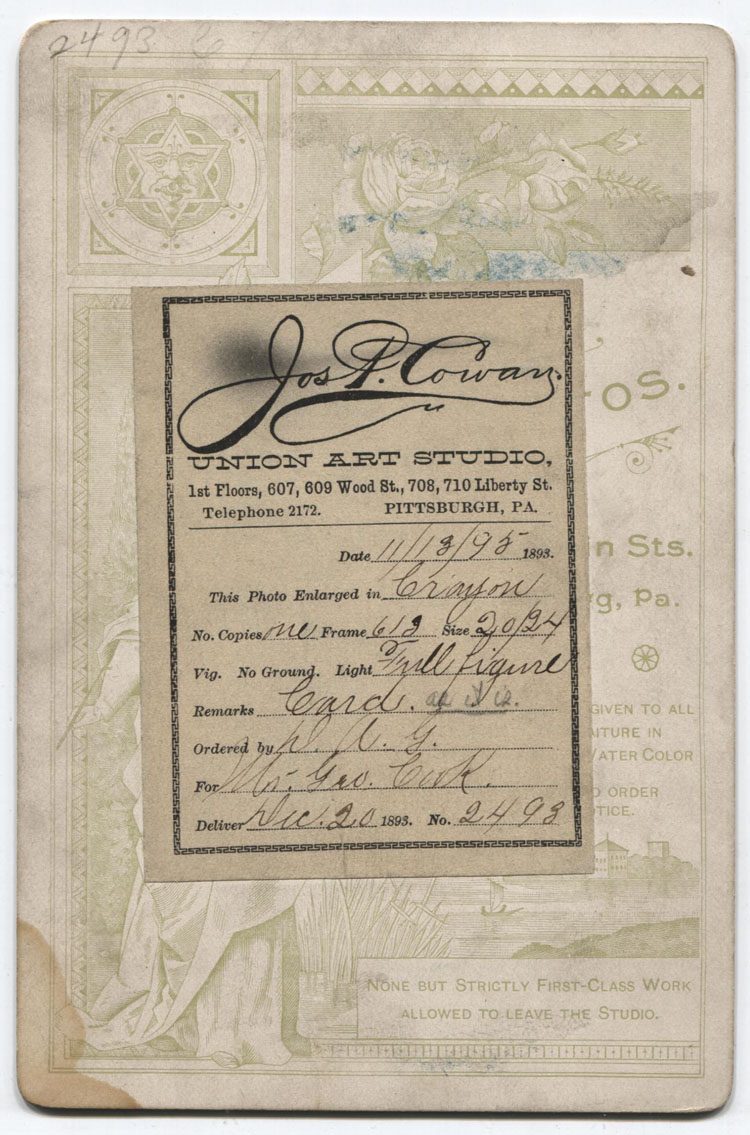 2493
Jos. P. Cowan.
UNION ART STUDIO,
1st Floors, 607, 609 Wood St., 708, 710 Liberty St.
Telephone 2172. PITTSBURGH, PA.
Date 11/13/95 1893.
This Photo Enlarged in Crayon
No. Copies one Frame 613 Size 20/24
Vig. No Ground. Light Full figure
Remarks Card.
Ordered by
For Mr. Geo. Cook.
Deliver Dec. 20 1893. No. 2493
os.
n Sts.
g, Pa.
GIVEN TO ALL
ATURE IN
WATER COLOR
O ORDER
OTICE.
NONE BUT STRICTLY FIRST-CLASS WORK
ALLOWED TO LEAVE THE STUDIO.